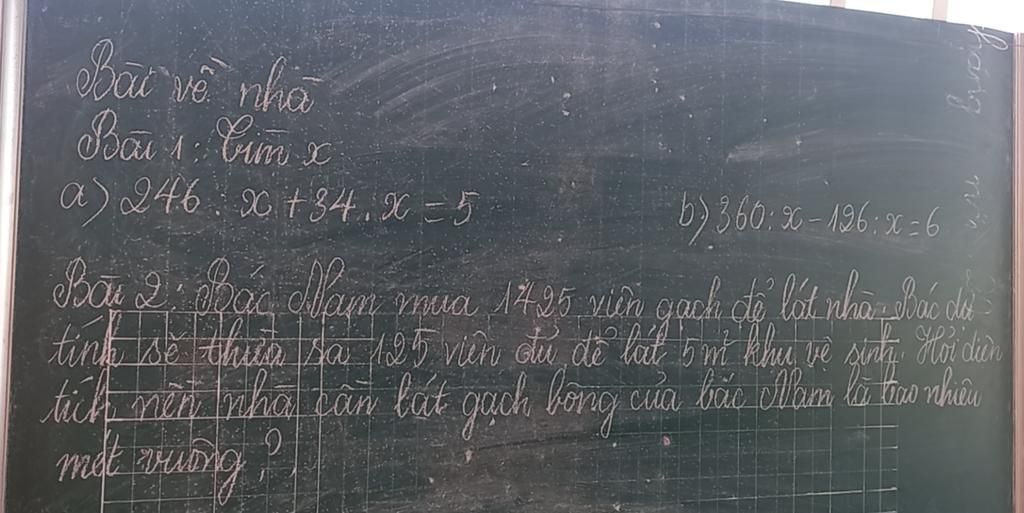 Bài về nhà
Bài 1: Tìm x
a) 246 : x + 34 : x = 5
b) 360 : x - 126 : x = 6
Bài 2: Bác Nam mua 1425 viên gạch để lát nhà. Bác dự
tính sẽ thừa ra 125 viên đủ để lát 5m² khu vệ sinh. Hỏi diện
tích nền nhà cần lát gạch bông của bác Nam là bao nhiêu
mét vuông?